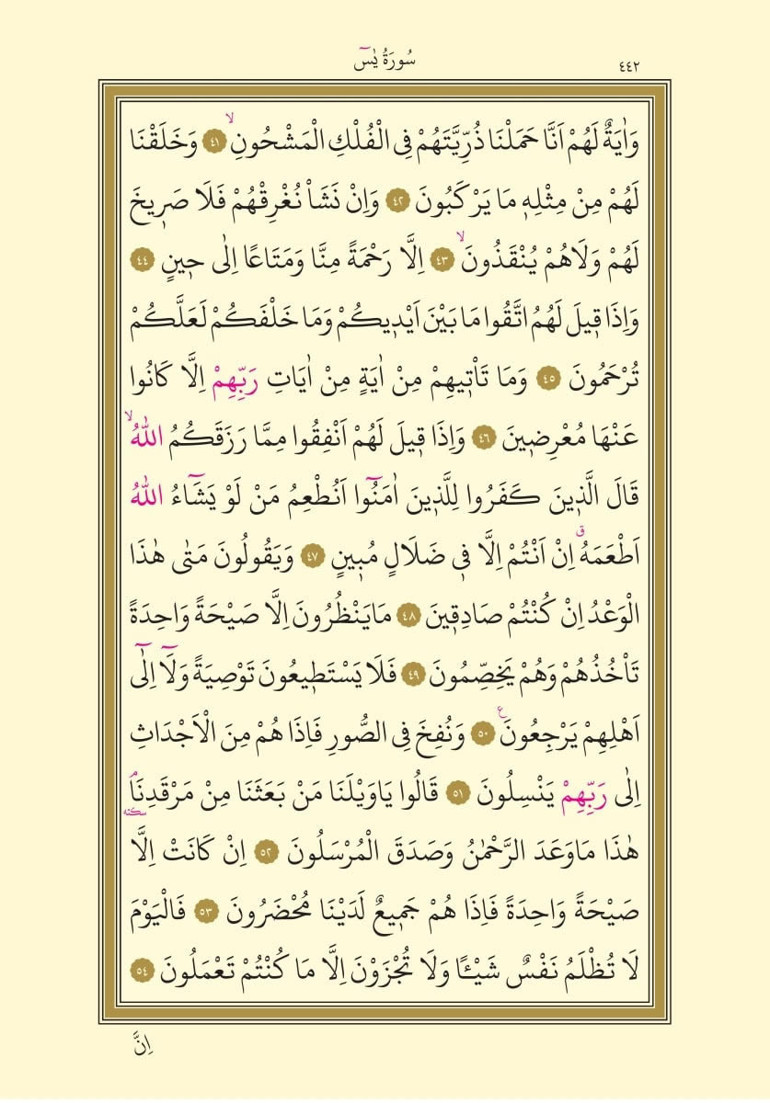 ٤٤٢
سُورَةُ يٰسٓ
وَاٰيَةٌ لَهُمْ اَنَّا حَمَلْنَا ذُرِّيَّتَهُمْ فِى الْفُلْكِ الْمَشْحُونِۙ ﴿٤١﴾ وَخَلَقْنَا
لَهُمْ مِنْ مِثْلِه۪ مَا يَرْكَبُونَ ﴿٤٢﴾ وَاِنْ نَشَاْ نُغْرِقْهُمْ فَلَا صَر۪يخَ
لَهُمْ وَلَاهُمْ يُنْقَذُونَۙ ﴿٤٣﴾ اِلَّا رَحْمَةً مِنَّا وَمَتَاعًا اِلٰى ح۪ينٍ ﴿٤٤﴾
وَاِذَا ق۪يلَ لَهُمُ اتَّقُوا مَا بَيْنَ اَيْد۪يكُمْ وَمَا خَلْفَكُمْ لَعَلَّكُمْ
تُرْحَمُونَ ﴿٤٥﴾ وَمَا تَاْت۪يهِمْ مِنْ اٰيَةٍ مِنْ اٰيَاتِ رَبِّهِمْ اِلَّا كَانُوا
عَنْهَا مُعْرِض۪ينَ ﴿٤٦﴾ وَاِذَا ق۪يلَ لَهُمْ اَنْفِقُوا مِمَّا رَزَقَكُمُ اللّٰهُۙ
قَالَ الَّذ۪ينَ كَفَرُوا لِلَّذ۪ينَ اٰمَنُٓوا اَنُطْعِمُ مَنْ لَوْ يَشَٓاءُ اللّٰهُ
اَطْعَمَهُۗ اِنْ اَنْتُمْ اِلَّا ف۪ى ضَلَالٍ مُب۪ينٍ ﴿٤٧﴾ وَيَقُولُونَ مَتٰى هٰذَا
الْوَعْدُ اِنْ كُنْتُمْ صَادِق۪ينَ ﴿٤٨﴾ مَايَنْظُرُونَ اِلَّا صَيْحَةً وَاحِدَةً
تَاْخُذُهُمْ وَهُمْ يَخِصِّمُونَ ﴿٤٩﴾ فَلَا يَسْتَط۪يعُونَ تَوْصِيَةً وَلَٓا اِلٰٓى
اَهْلِهِمْ يَرْجِعُونَ ع ﴿٥٠﴾ وَنُفِخَ فِى الصُّورِ فَاِذَا هُمْ مِنَ الْاَجْدَاثِ
اِلٰى رَبِّهِمْ يَنْسِلُونَ ﴿٥١﴾ قَالُوا يَاوَيْلَنَا مَنْ بَعَثَنَا مِنْ مَرْقَدِنَاۢ سكته
هٰذَا مَاوَعَدَ الرَّحْمٰنُ وَصَدَقَ الْمُرْسَلُونَ ﴿٥٢﴾ اِنْ كَانَتْ اِلَّا
صَيْحَةً وَاحِدَةً فَاِذَا هُمْ جَم۪يعٌ لَدَيْنَا مُحْضَرُونَ ﴿٥٣﴾ فَالْيَوْمَ
لَا تُظْلَمُ نَفْسٌ شَيْـًٔا وَلَا تُجْزَوْنَ اِلَّا مَا كُنْتُمْ تَعْمَلُونَ ﴿٥٤﴾
اِنَّ